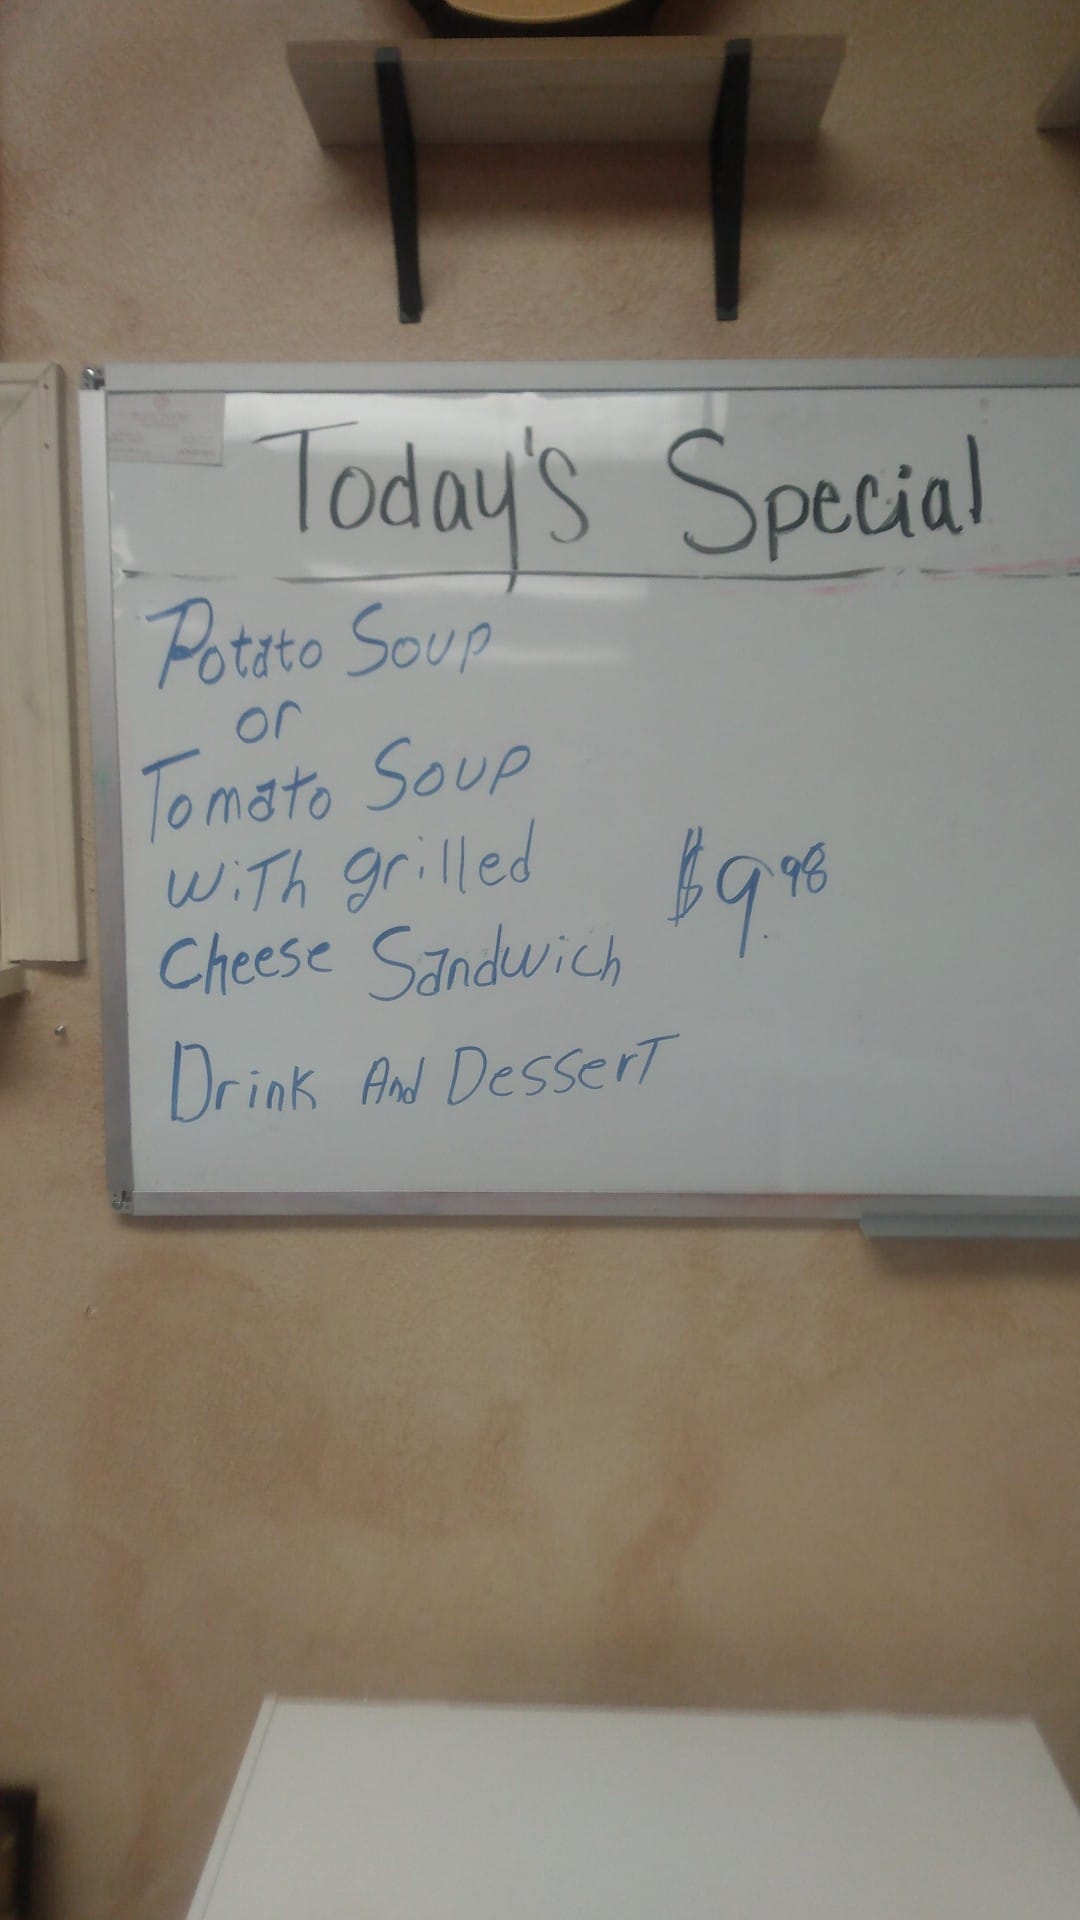 Today's Special
Potato Soup
or
Tomato Soup
with grilled
Cheese Sandwich
$9.98
Drink And Dessert